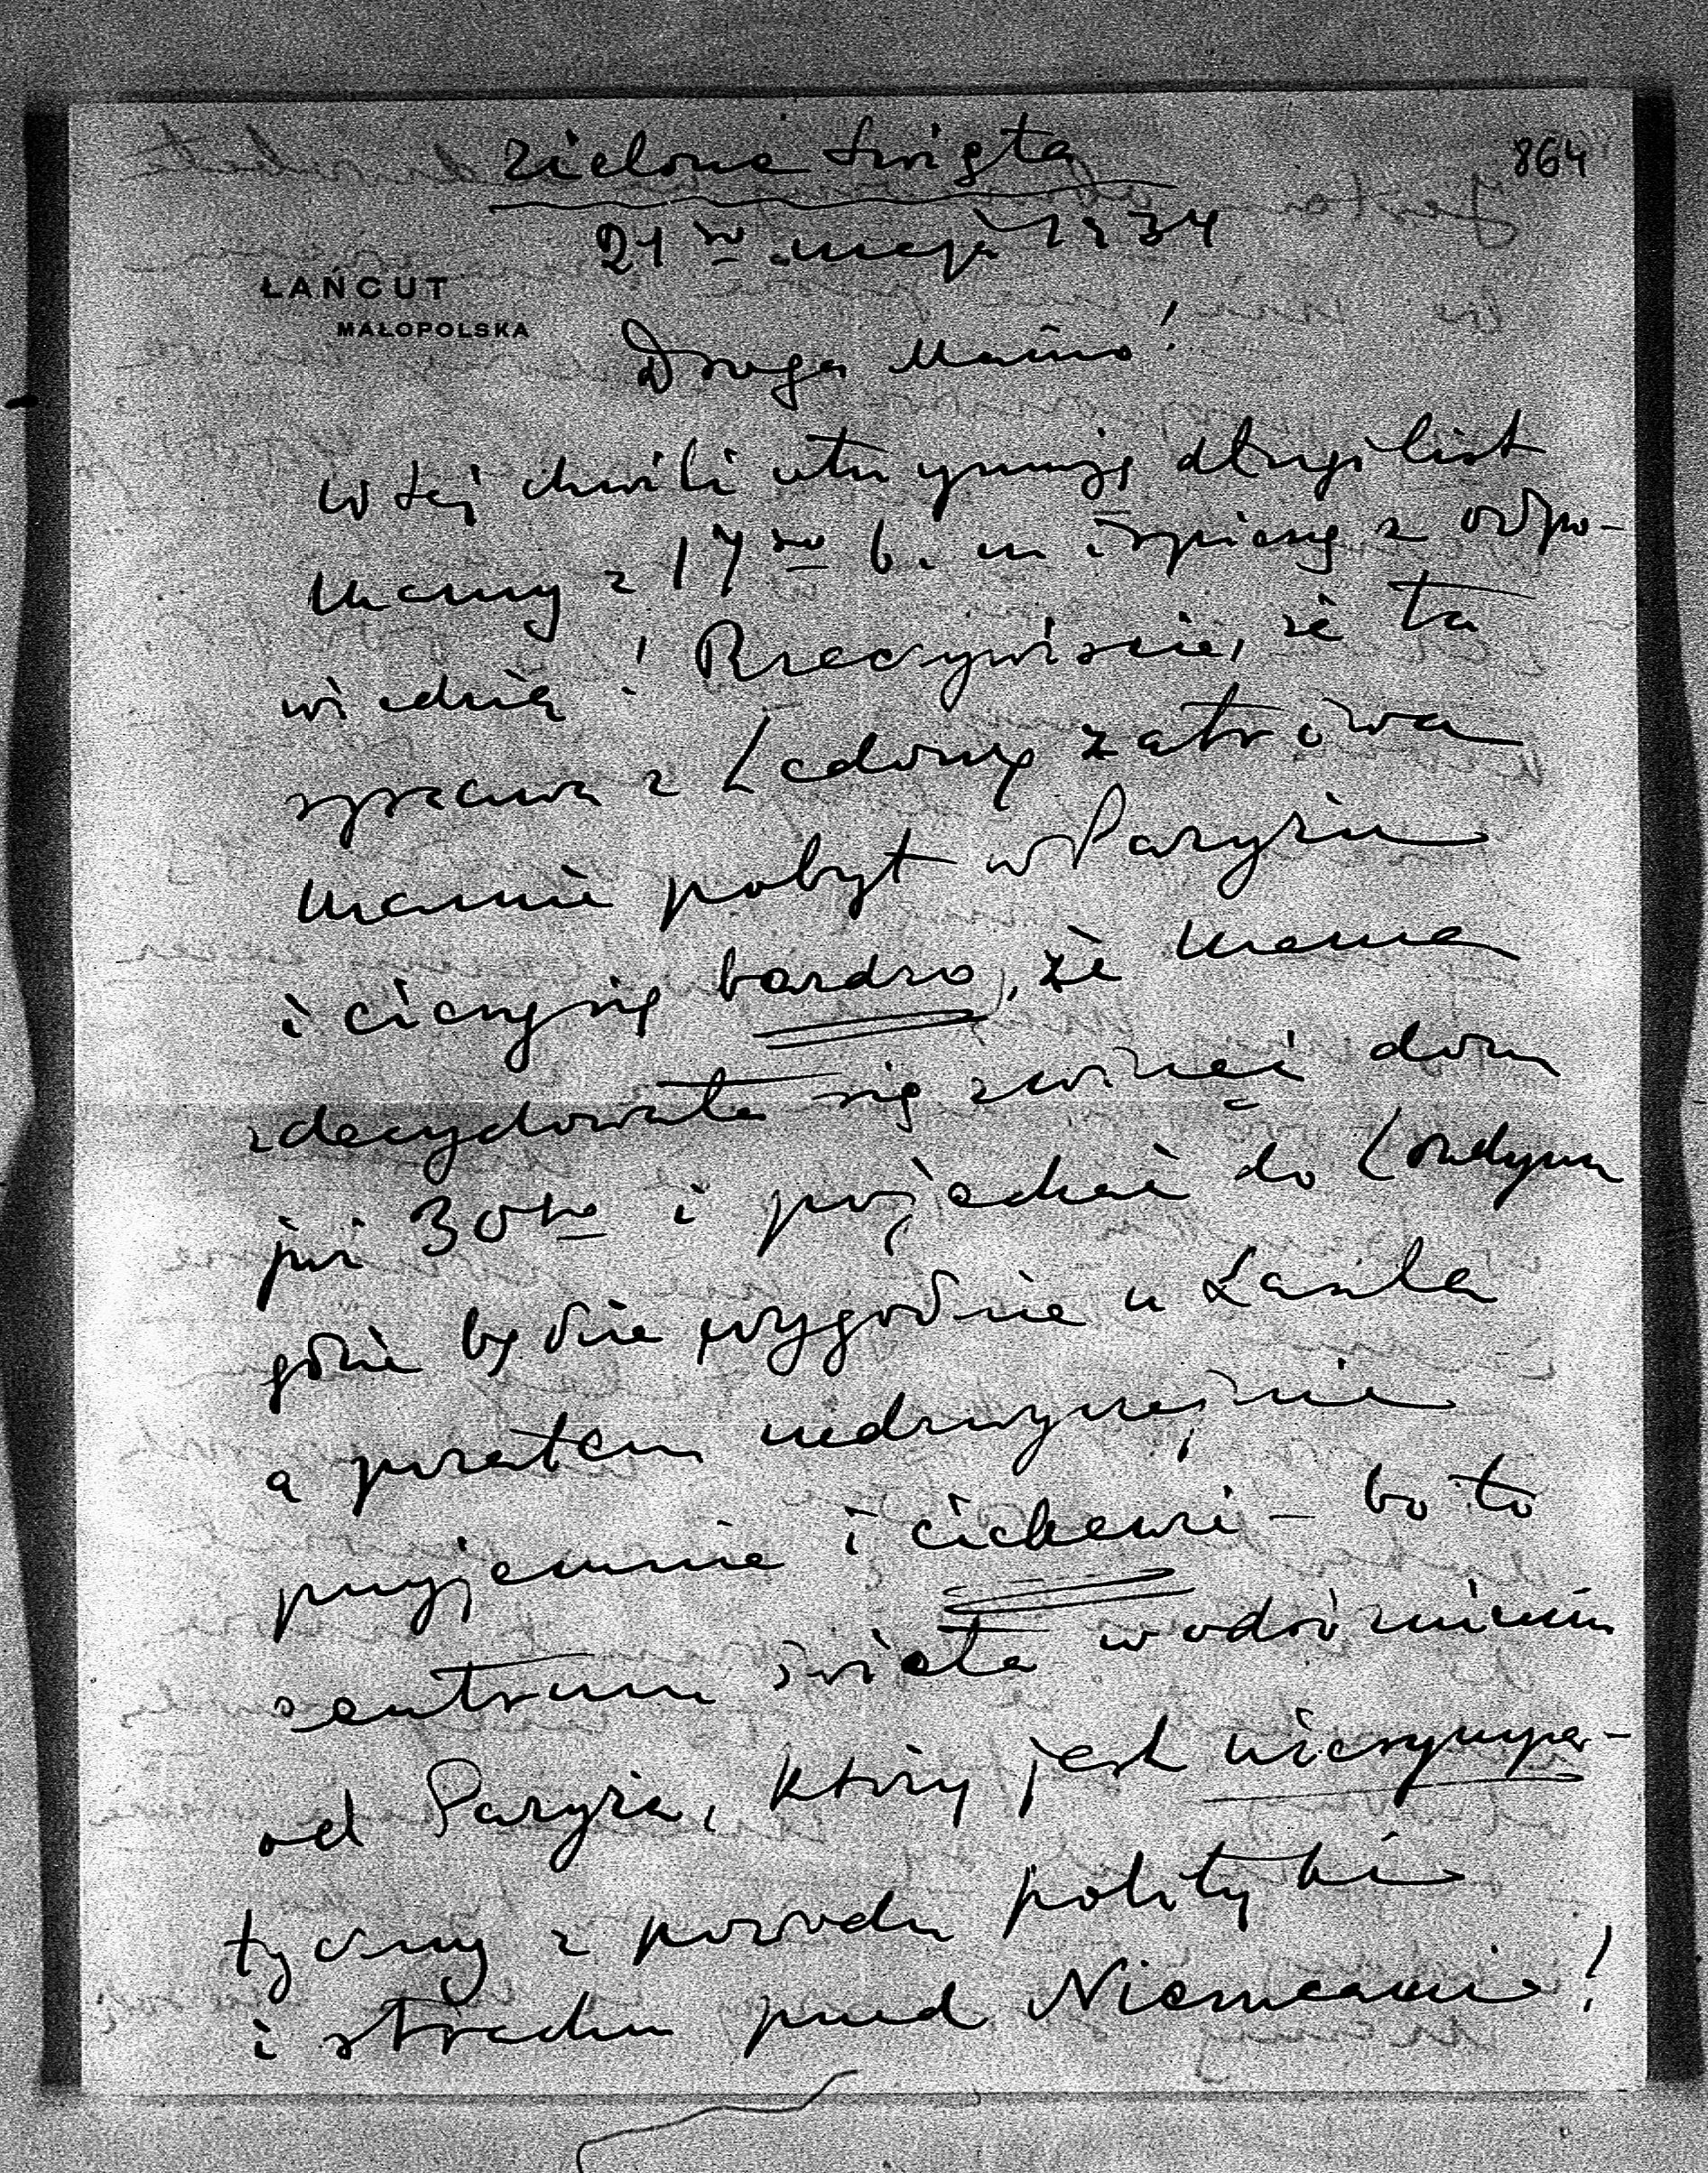 Zielone święta
864
21go maja 1934
ŁAŃCUT
MAŁOPOLSKA
Droga Mamo!
W tej chwili otrzymuję długi list
Mamy z 17go b. m i spieszę z odpo-
wiedzią! Rzeczywiście, że ta
sprawa z Ledową zatrówa
Mamie pobyt w Paryżu
i cieszę się bardzo, że Mama
zdecydowała się zwinąć dom
już 30go i pojechać do Londynu
gdzie będzie wygodnie u Laszla
a pozatem nadzwyczajnie
przyjemnie i ciekawie – bo to
centrum świata w odróżnieniu
od Paryża, który jest niesympa-
tyczny z powodu polityki
i strachu przed Niemcami!